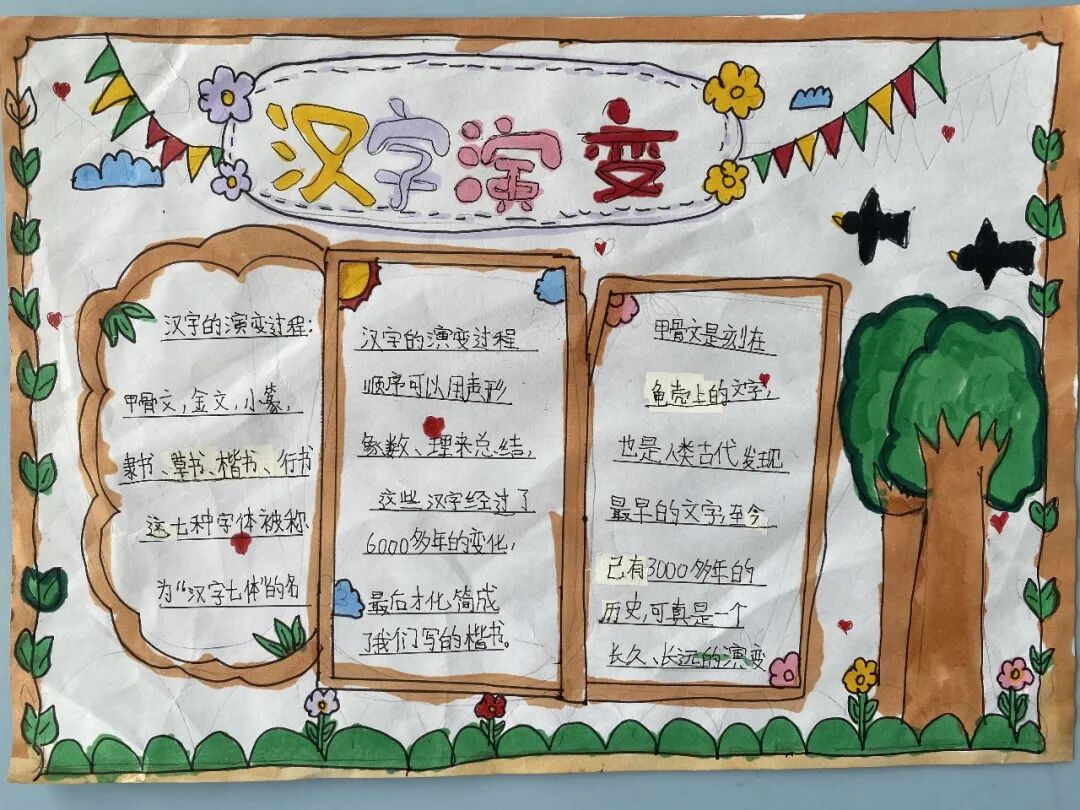 汉字演变
汉字的演变过程:
甲骨文,金文,小篆,
隶书、草书、楷书、行书
这七种字体被称
为“汉字七体”的名
汉字的演变过程
顺序可以用声形
象数、理来总结,
这些汉字经过了
6000多年的变化,
最后才化简成
了我们写的楷书。
甲骨文是刻在
龟壳上的文字,
也是人类古代发现
最早的文字,至今
已有3000多年的
历史,可真是一个
长久、长远的演变